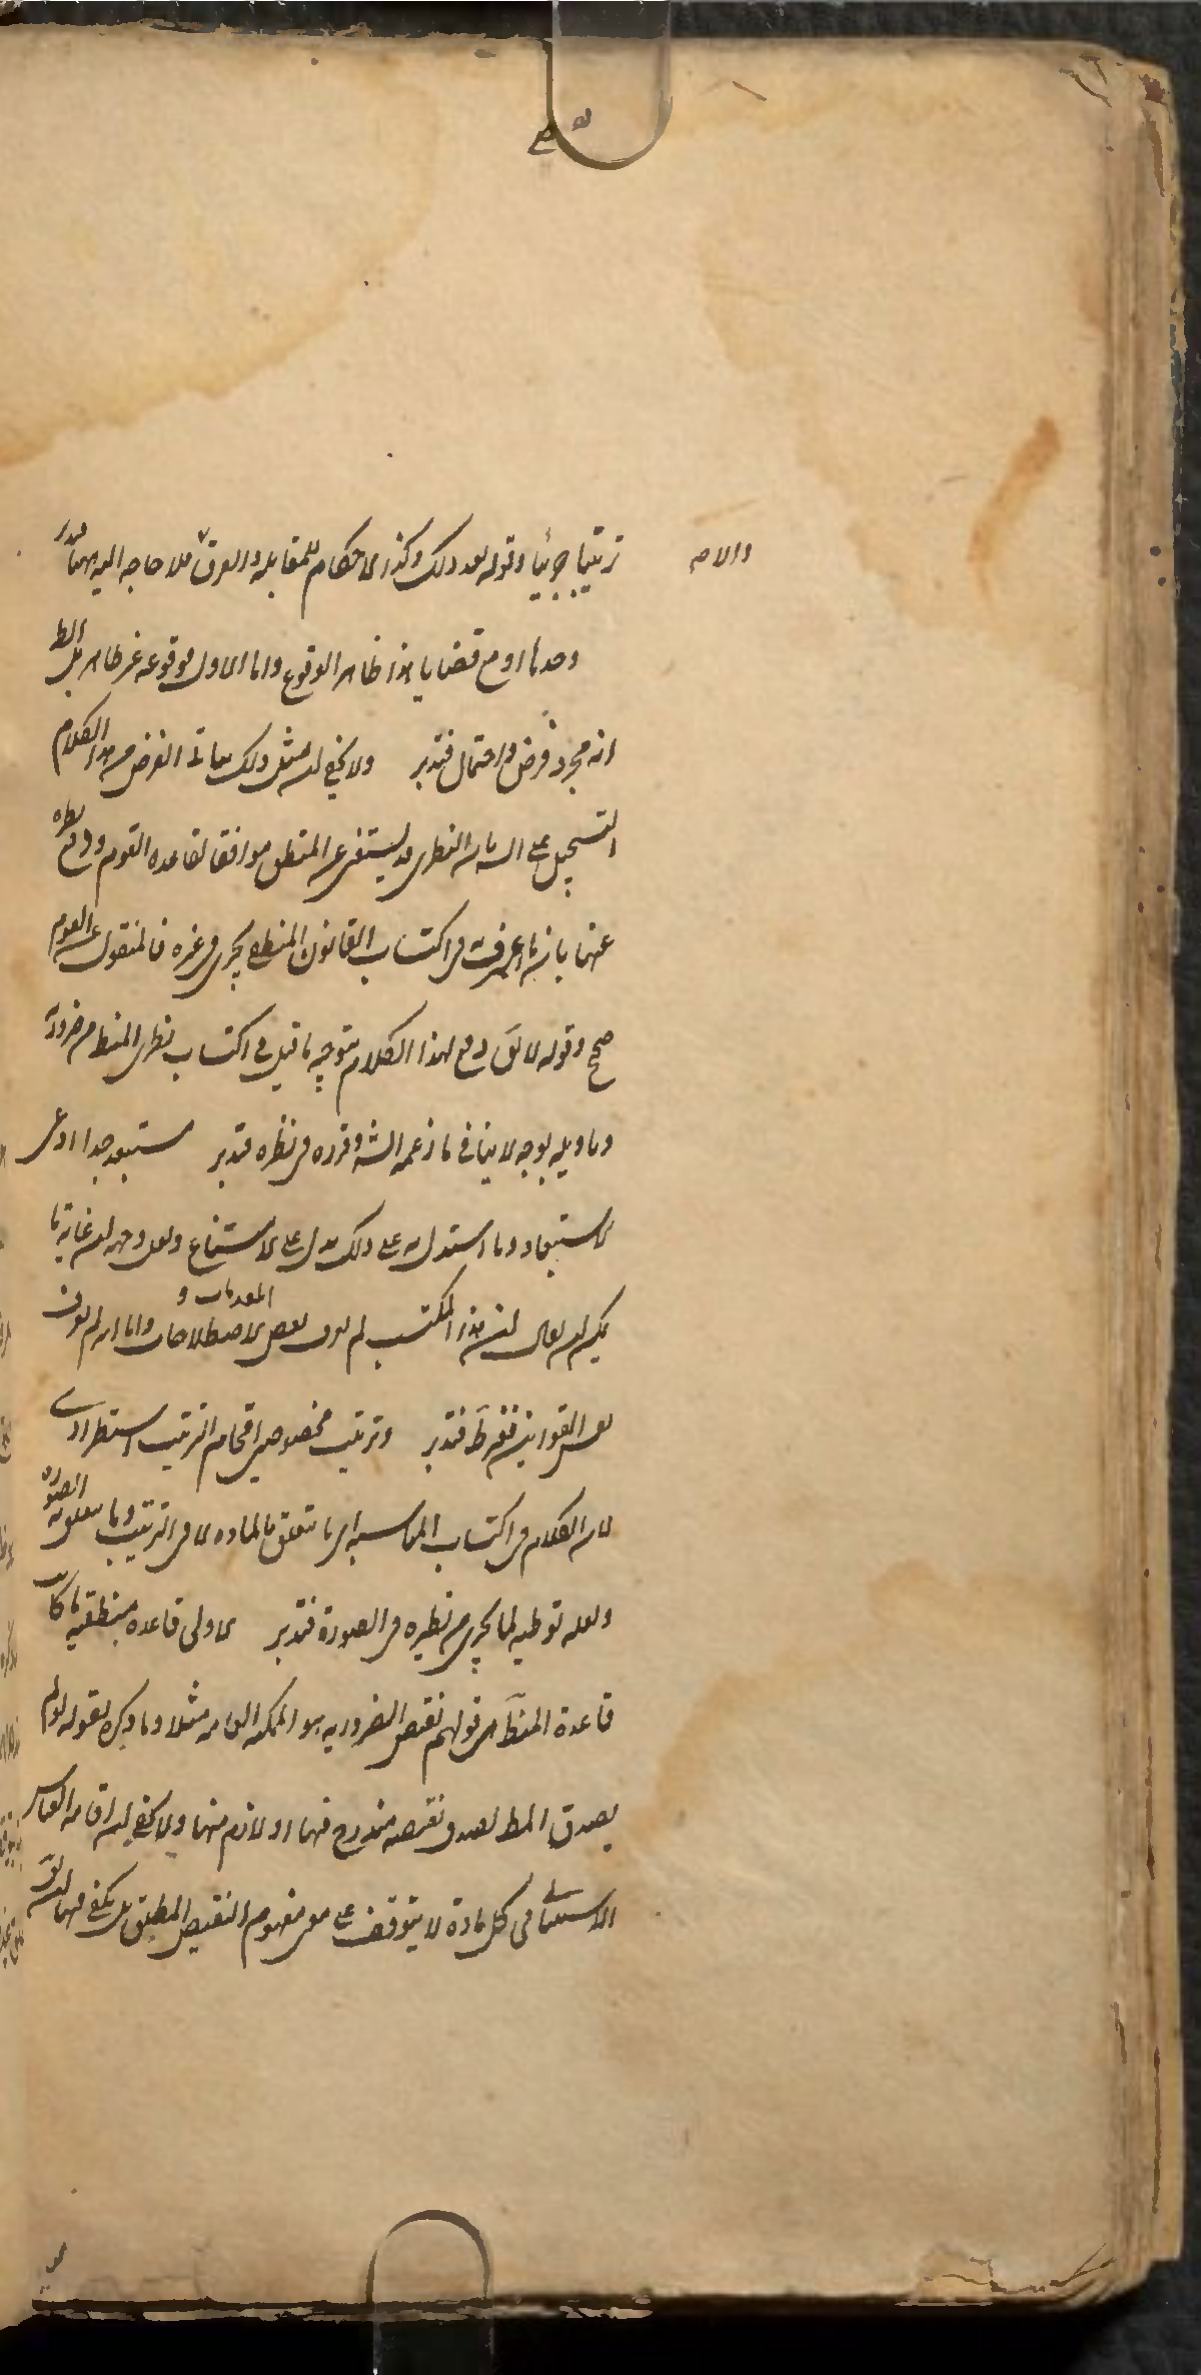 ترتيبا جزئيا وقوله بعد ذلك وكذا الاحكام للمقابلة والفرق فلا حاجة اليه مهنا فتدبر
وحدها او مع قضايا هذا ظاهر الوقوع واما الاول فوقوعه غير ظاهر بل الظ
انه مجرد فرض واحتمال فتدبر ولا يخفى ان مثل ذلك الغرض من هذا الكلام
التسجيل على الشه بان النظرى قد يستغنى عن المنطق موافقا لقاعدة القوم ودفع نظره
عنها بانه ما عرفت فى اكتساب القانون المنطقى يجرى فى غيره فالمنقول عن القوم
صحيح وقوله لا يق دفع لهذا الكلام بتوجيه ما قيل فى اكتساب نظرى المنط من ضرورية
وتاويله بوجه لا ينافى ما زعمه الشه وقرره فى نظره فتدبر مستبعد جدا ادعى
الاستبعاد وما استدل به على ذلك يدل على الامتناع ولعل وجهه ان غاية ما
يمكن ان يقال ان هذا المكتسب لم يعرف بعض المقدمات و الاصطلاحات واما انه لم يعرف
بعض القوانين فغير ظ فتدبر وترتيب مخصوص اقحام الترتيب استطرادى
لان الكلام فى اكتساب المناسبة اى ما يتعلق بالمادة لا فى الترتيب وما يتعلق به الصورة
ولعله توطية لما يجرى من نظيره فى الصورة فتدبر الاولى قاعدة منطقية ما كانت
قاعدة المنط هى قولهم نقيض الضرورية هو الممكنة العامة مثلا وما ذكره بقوله لو لم
يصدق المط لصدق نقيضه مندرج فيها او لازم منها ولا يخفى ان اقامة القياس
الاستثنائى فى كل مادة لا يتوقف على معرفة مفهوم النقيض المطلق بل يكفى فيها ان يق